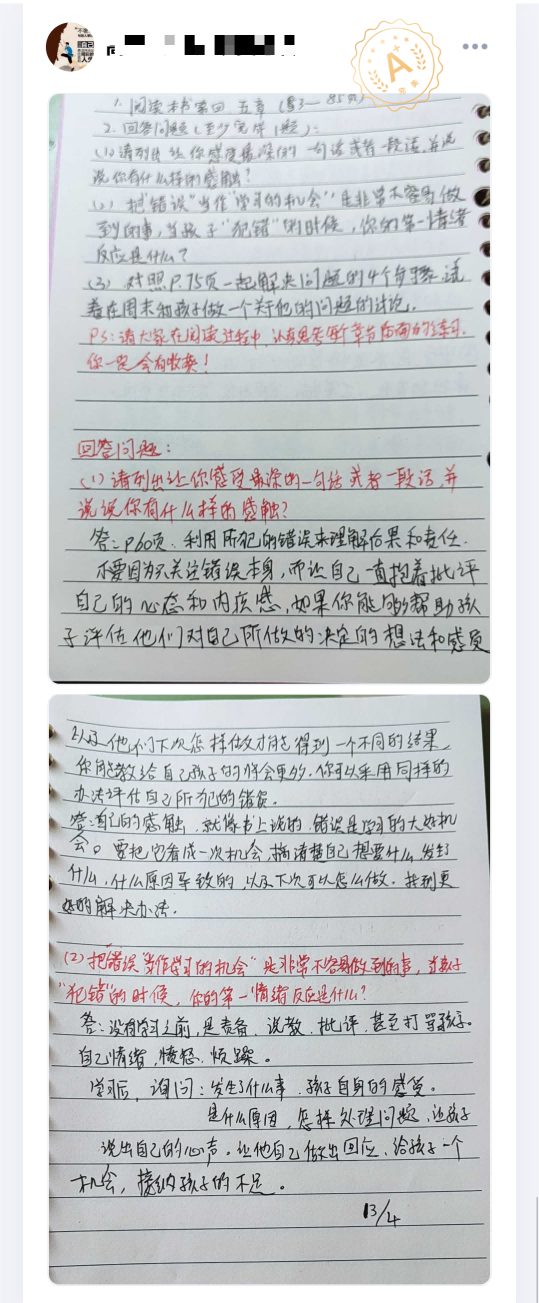 A
1. 阅读本书第四 五章 (
2. 回答问题 (至少完成1题):
(1) 请列出让你感受最深的一句话或者一段话,并说
说你有什么样的感触?
(2) 把"错误"当作"学习的机会"是非常不容易做
到的事,当孩子"犯错"的时候,你的第一情绪
反应是什么?
(3) 对照P.75页一起解决问题的4个步骤,试
着在周末和孩子做一个关于他的问题的讨论.
PS:请大家在阅读过程中,认真思考每个章节后面的练习.
你一定会有收获!
回答问题:
(1) 请列出让你感受最深的一句话或者一段话,并
说说你有什么样的感触?
答:P60页.利用所犯的错误来理解后果和责任.
不要因为只关注错误本身,而让自己一直抱着批评
自己的心态和内疚感,如果你能够帮助孩
子评估他们对自己所做的决定的想法和感觉
以及他们下次怎样做才能得到一个不同的结果,
你能教给自己孩子的将会更多.你可以采用同样的
办法评估自己所犯的错误.
答:自己的感触,就像书上说的,错误是学习的大好机
会。要把它看成一次机会,搞清楚自己想要什么,发生了
什么,什么原因导致的,以及下次可以怎么做.找到更
好的解决办法.
(2) 把错误"当作学习的机会"是非常不容易做到的事,当孩子
"犯错"的时候,你的第一情绪反应是什么?
答:没有学习之前,是责备、说教、批评、甚至打骂孩子.
自己情绪,愤怒、烦躁。
学习后,询问:发生了什么事,孩子自身的感受。
是什么原因,怎样处理问题,让孩子
说出自己的心声。让他自己做出回应,给孩子一个
机会,接纳孩子的不足。
13/4